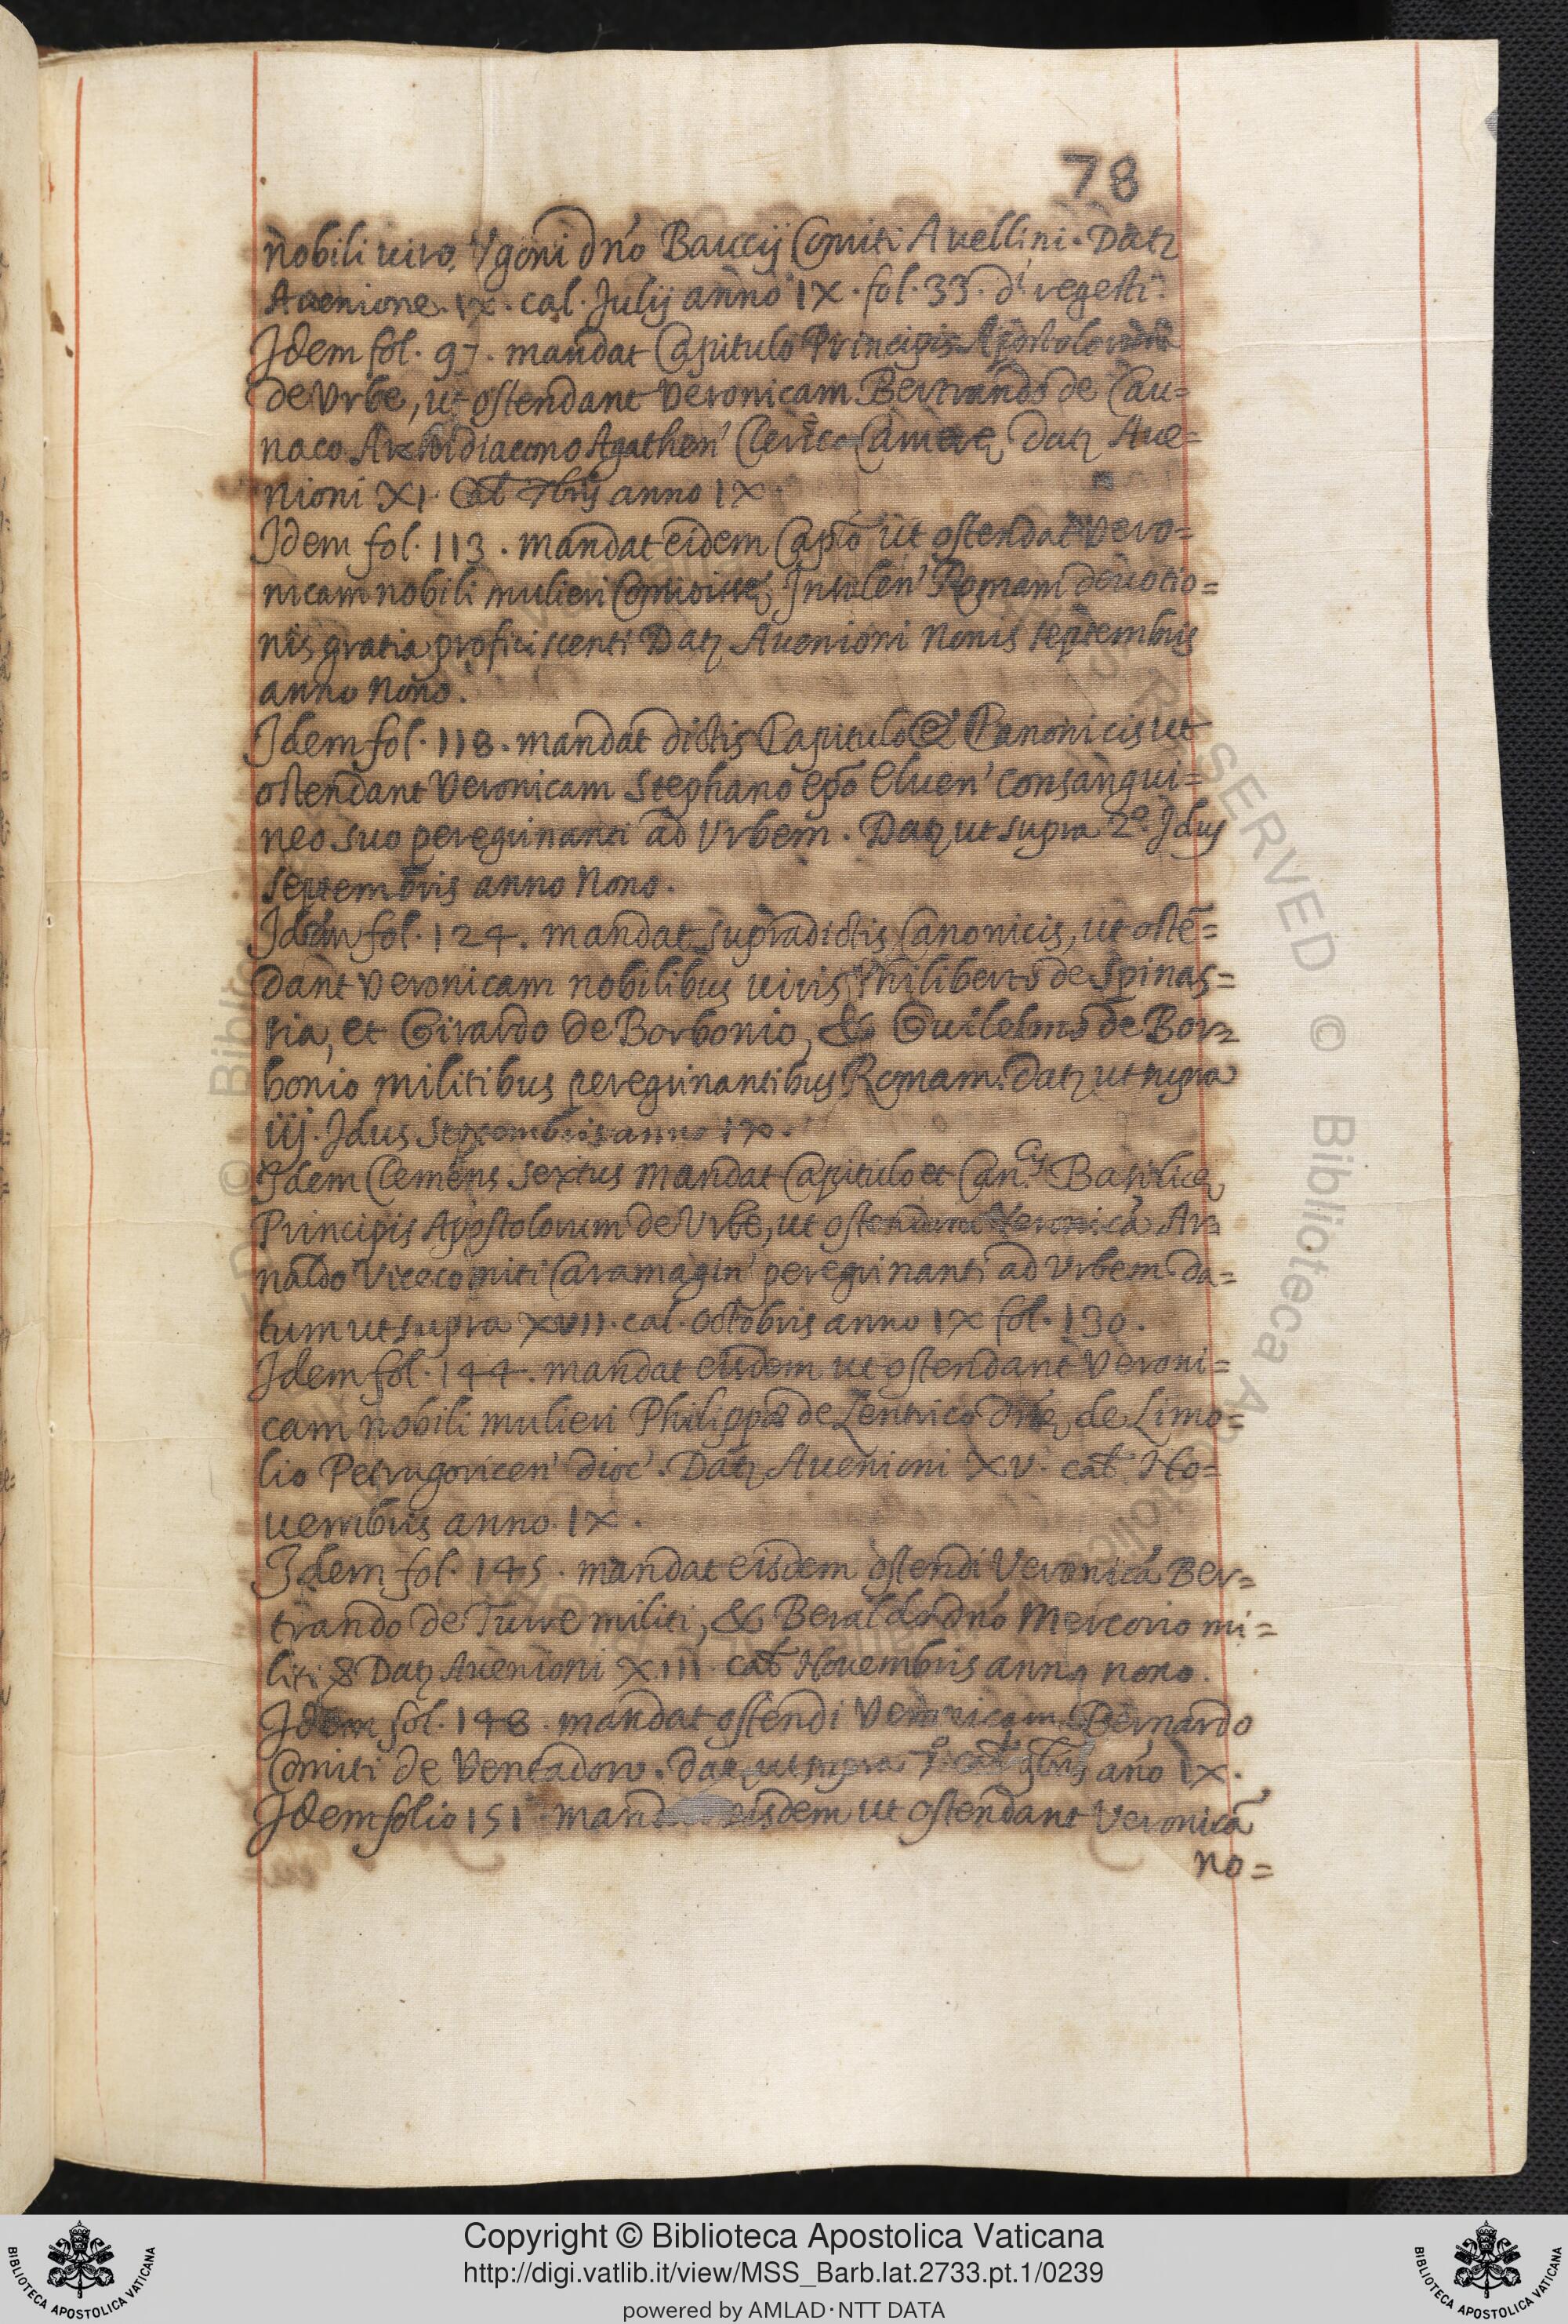 78
nobili uiro, Vgoni dño Baucij Comiti Auellini. Datʒ
Auenione. IX. cal. Julij anno IX. fol. 33. di regesti.
Idem fol. 97. mandat Capitulo Principis Apostolorum
de Vrbe, ut ostendant Veronicam Bertrando de Cau=
naco Archidiacono Agathen' Clerico Camerę Datʒ Aue=
nioni XI. Cal 7bris anno IX
Idem fol. 113. mandat eidem Caplo ut ostendat Vero=
nicam nobili mulieri Comitissę Insulen' Romam deuotio=
nis gratia proficiscenti Datʒ Auenioni Nonis septembris
anno Nono.
Idem fol. 118. mandat dictis Capitulo & Canonicis ut
ostendant Veronicam Stephano epõ Eluen' consangui=
neo suo peregrinanti ad Vrbem. Datʒ ut supra 2º Idus
septembris anno Nono.
Idem fol. 124. mandat supradictis Canonicis, ut ostẽ=
dant Veronicam nobilibus uiris Philiberto de Spinas=
ria, et Girardo de Borbonio, & Guilelmo de Bor=
bonio militibus peregrinantibus Romam. Datʒ ut supra
iij. Idus Septembris anno IX.
Idem Clemens sextus mandat Capitulo et Can.cis Basilicę
Principis Apostolorum de Vrbe, ut ostendant Veronicã Ar=
naldo Vicecomiti Caramagin' peregrinanti ad Vrbem da=
tum ut supra XVII. cal. octobris anno IX fol. 130.
Idem fol. 144. mandat eisdem ut ostendant Veroni=
cam nobili mulieri Philippę de Lentrico Dñę de Limo=
lio Petragoricen' dioc'. Datʒ Auenioni XV. cal No=
uembris anno. IX.
Idem fol. 145. mandat eisdem ostendi Veronicã Ber=
trando de Turre militi, & Beraldo dño Mercorio mi=
liti & Datʒ Auenioni XIII. cal Nouembris anno nono.
Idem fol. 148. mandat ostendi Veronicam Bernardo
Comiti de Ventadorn. Datʒ ut supra 9bris año IX.
Idem folio 151. mandat eisdem ut ostendant Veronicã
no=
Copyright © Biblioteca Apostolica Vaticana
http://digi.vatlib.it/view/MSS_Barb.lat.2733.pt.1/0239
powered by AMLAD·NTT DATA
BIBLIOTECA APOSTOLICA VATICANA
BIBLIOTECA APOSTOLICA VATICANA